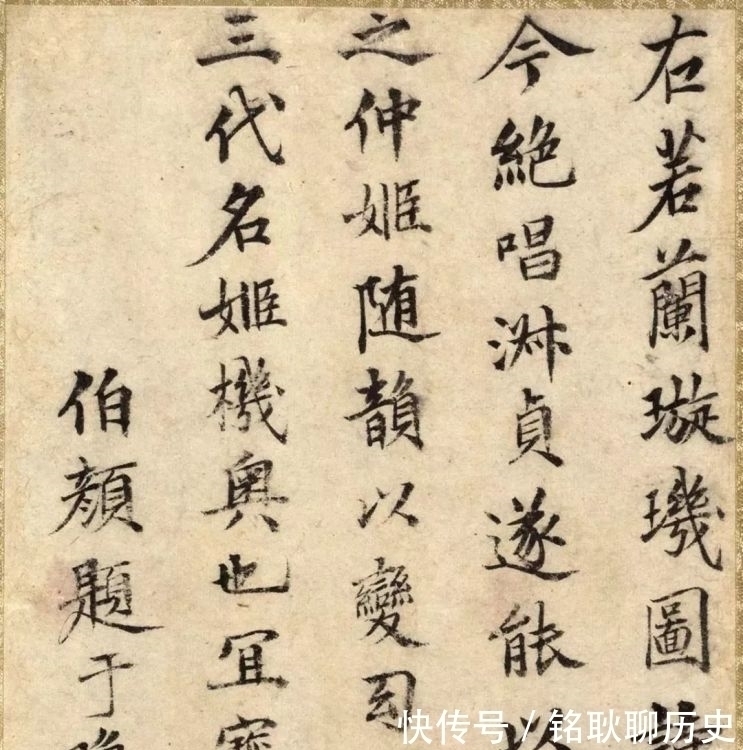 右若蘭璇璣圖
今絕唱淑貞遂能以
之仲姬随韻以變司
三代名姬機奥也宜寳
伯顏題于
快传号 / 铭耿聊历史